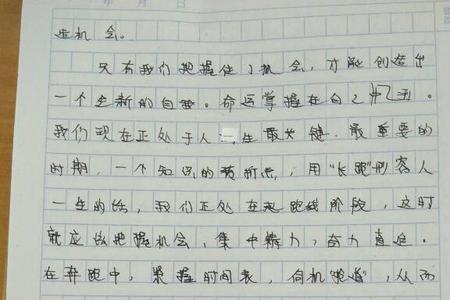 年 月 日
造机会。
只有我们把握住了机会，才能创造出
一个全新的自我。命运掌握在自己手里。
我们现在正处于人一生最关键、最重要的
时期，一个知识的转折点；用“长跑”形容人
一生的话，我们正处在起跑线阶段，这时
就应该把握机会，集中精力，奋力直追。
在奔跑中，掌握时间表，伺机“跑道”，从而